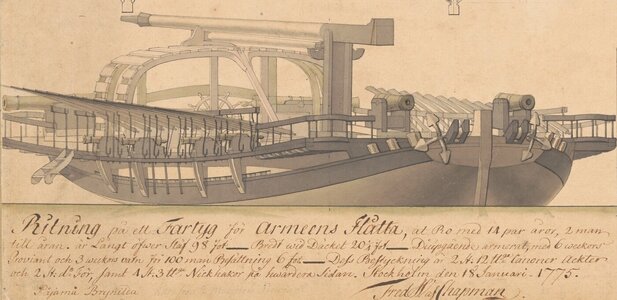 Ritning på ett Fartyg för Armeens Flåtta, at Ro med 14 par åror, 2 man
till åran. är Långt öfwer Stäf 98 fot Bredt wid Däcket 20½ fot Diupgående armerat, med 6 weckors
Proviant och 3 weckors vatn för 100 man Besättning 6 fot Dess Bestyckning är 2 st. 12 ℔er Canoner Ackter
och 2 st. do För, samt 4 st. 3 ℔er Nickhakar på hwardera Sidan. Stockholm den 18 Januari. 1775.
Fred. H af Chapman